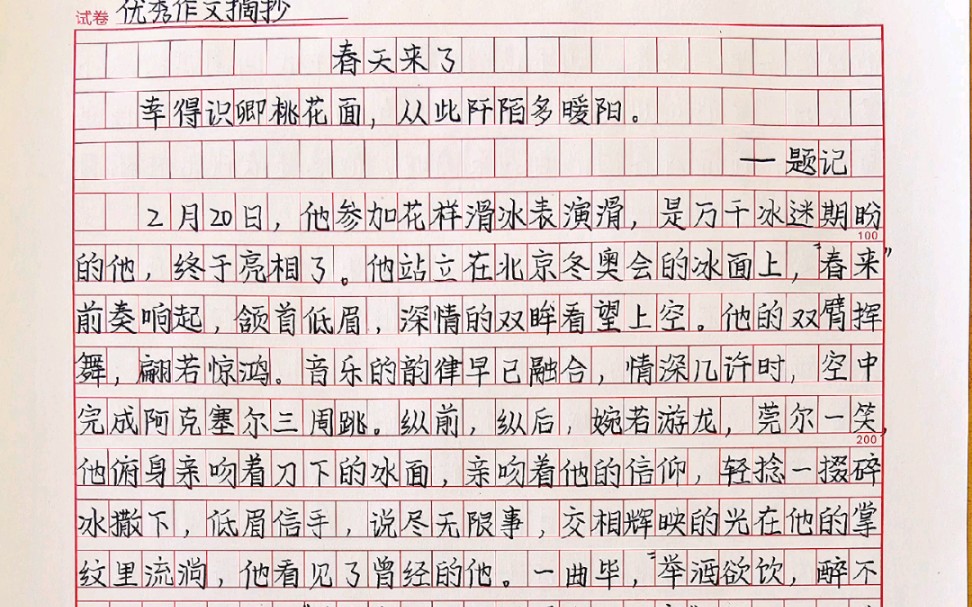 试卷 优秀作文摘抄
春天来了
幸得识卿桃花面，从此阡陌多暖阳。
— 题记
2月20日，他参加花样滑冰表演滑，是万千冰迷期盼
100
的他，终于亮相了。他站立在北京冬奥会的冰面上，“春来”
前奏响起，颔首低眉，深情的双眸看望上空。他的双臂挥
舞，翩若惊鸿。音乐的韵律早已融合，情深几许时，空中
完成阿克塞尔三周跳。纵前，纵后，婉若游龙，莞尔一笑，
200
他俯身亲吻着刀下的冰面，亲吻着他的信仰，轻捻一掇碎
冰撒下，低眉信手，说尽无限事，交相辉映的光在他的掌
纹里流淌，他看见了曾经的他。一曲毕，“举酒欲饮，醉不